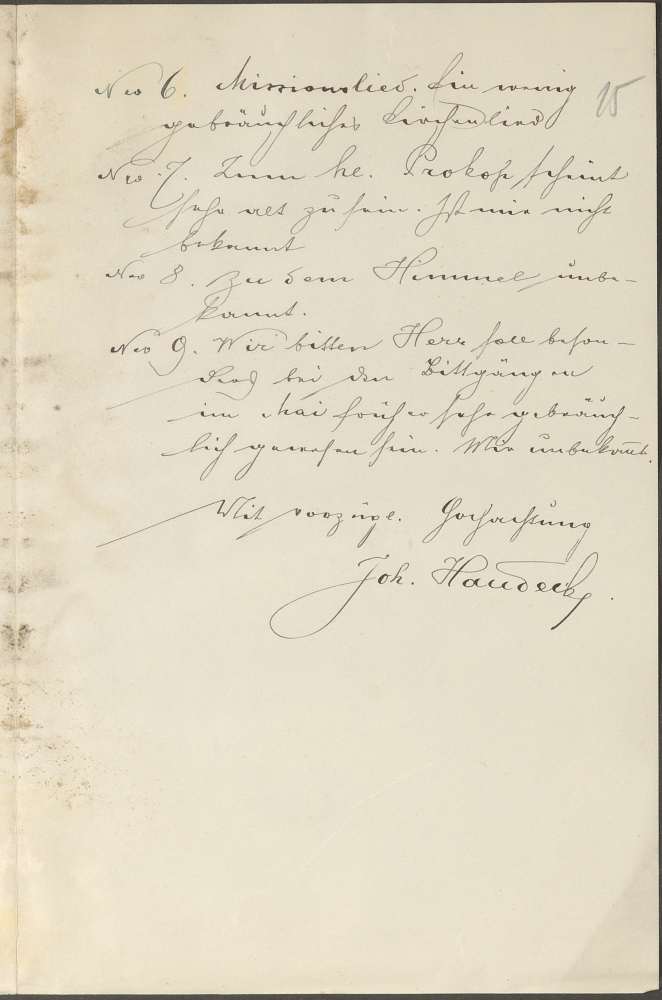 15
Nro 6. Missionslied. Ein wenig
gebräuchliches Kirchenlied
Nro. 7. Zum hl. Prokop scheint
sehr alt zu sein. Ist mir nicht
bekannt
Nro 8. Zu dem Himmel unbe-
kannt.
Nro 9. Wir bitten Herr soll beson-
ders bei den Bittgängen
im Mai früher sehr gebräuch-
lich gewesen sein. Mir unbekannt.
Mit vorzügl. Hochachtung
Joh. Haudeck.